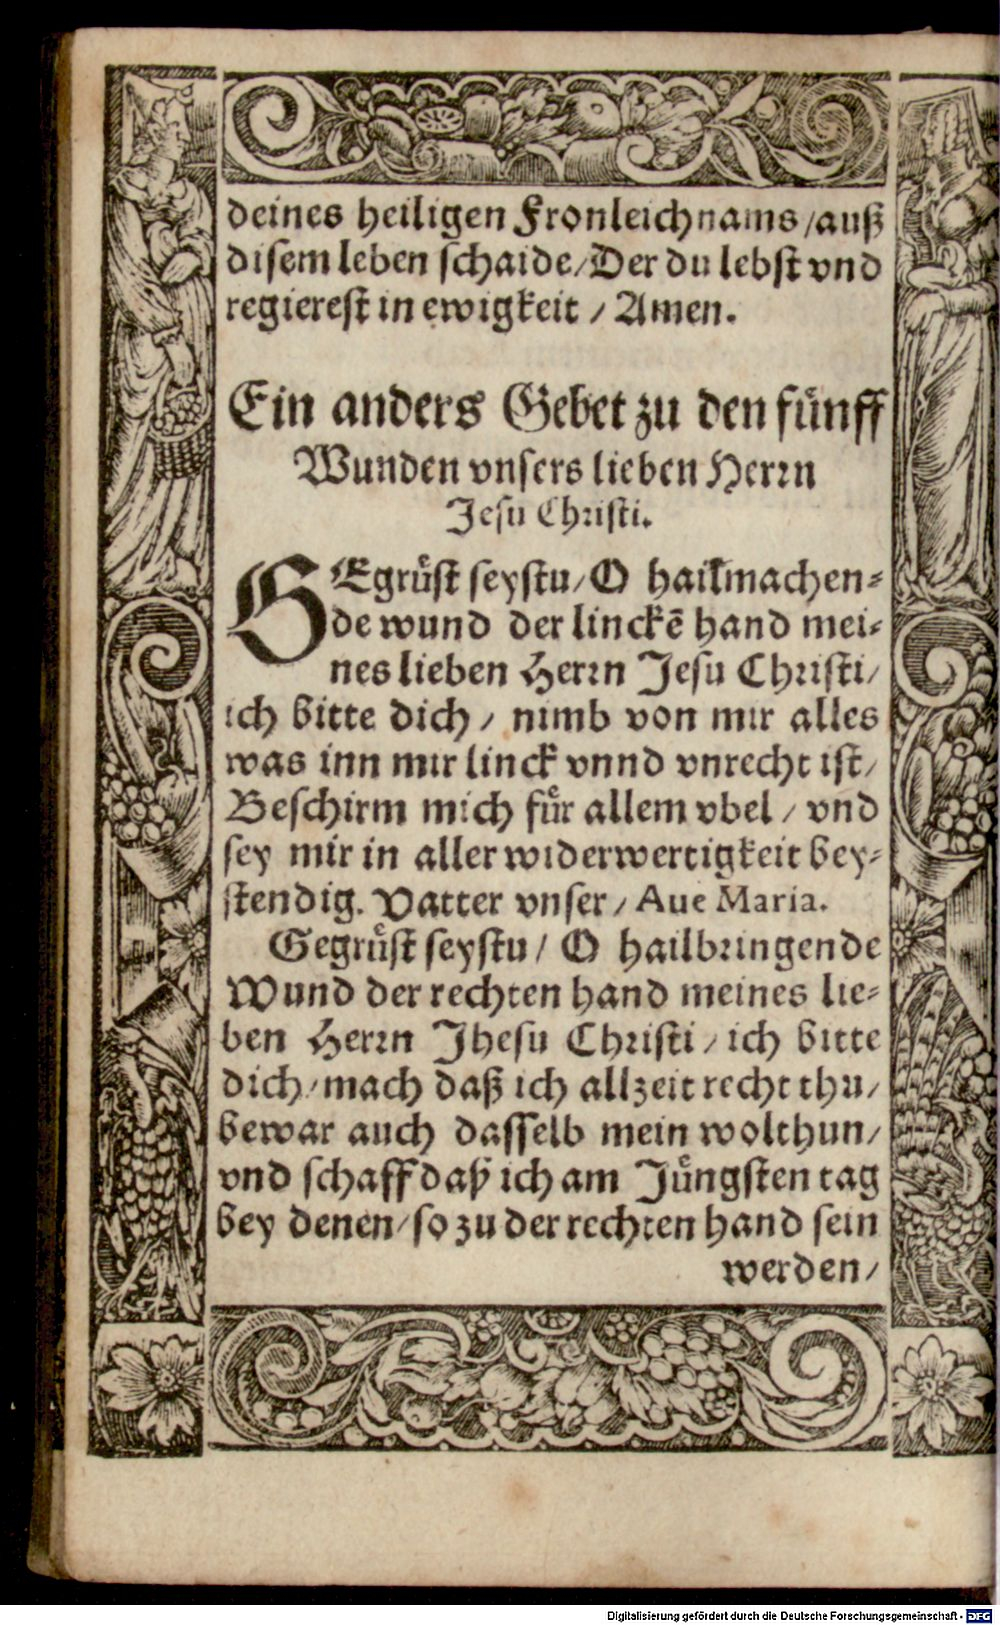 deines heiligen Fronleichnams / auß
disem leben schaide / Der du lebst vnd
regierest in ewigkeit / Amen.
Ein anders Gebet zu den fünff
Wunden vnsers lieben Herrn
Jesu Christi.
GEgrüst seystu / O hailmachen-
de wund der linckē hand mei-
nes lieben Herrn Jesu Christi /
ich bitte dich / nimb von mir alles
was inn mir linck vnnd vnrecht ist /
Beschirm mich für allem vbel / vnd
sey mir in aller widerwertigkeit bey-
stendig. Vatter vnser / Aue Maria.
Gegrüst seystu / O hailbringende
Wund der rechten hand meines lie-
ben Herrn Jhesu Christi / ich bitte
dich / mach daß ich allzeit recht thu /
bewar auch dasselb mein wolthun /
vnd schaff daß ich am Jüngsten tag
bey denen / so zu der rechten hand sein
werden /
Digitalisierung gefördert durch die Deutsche Forschungsgemeinschaft - DFG